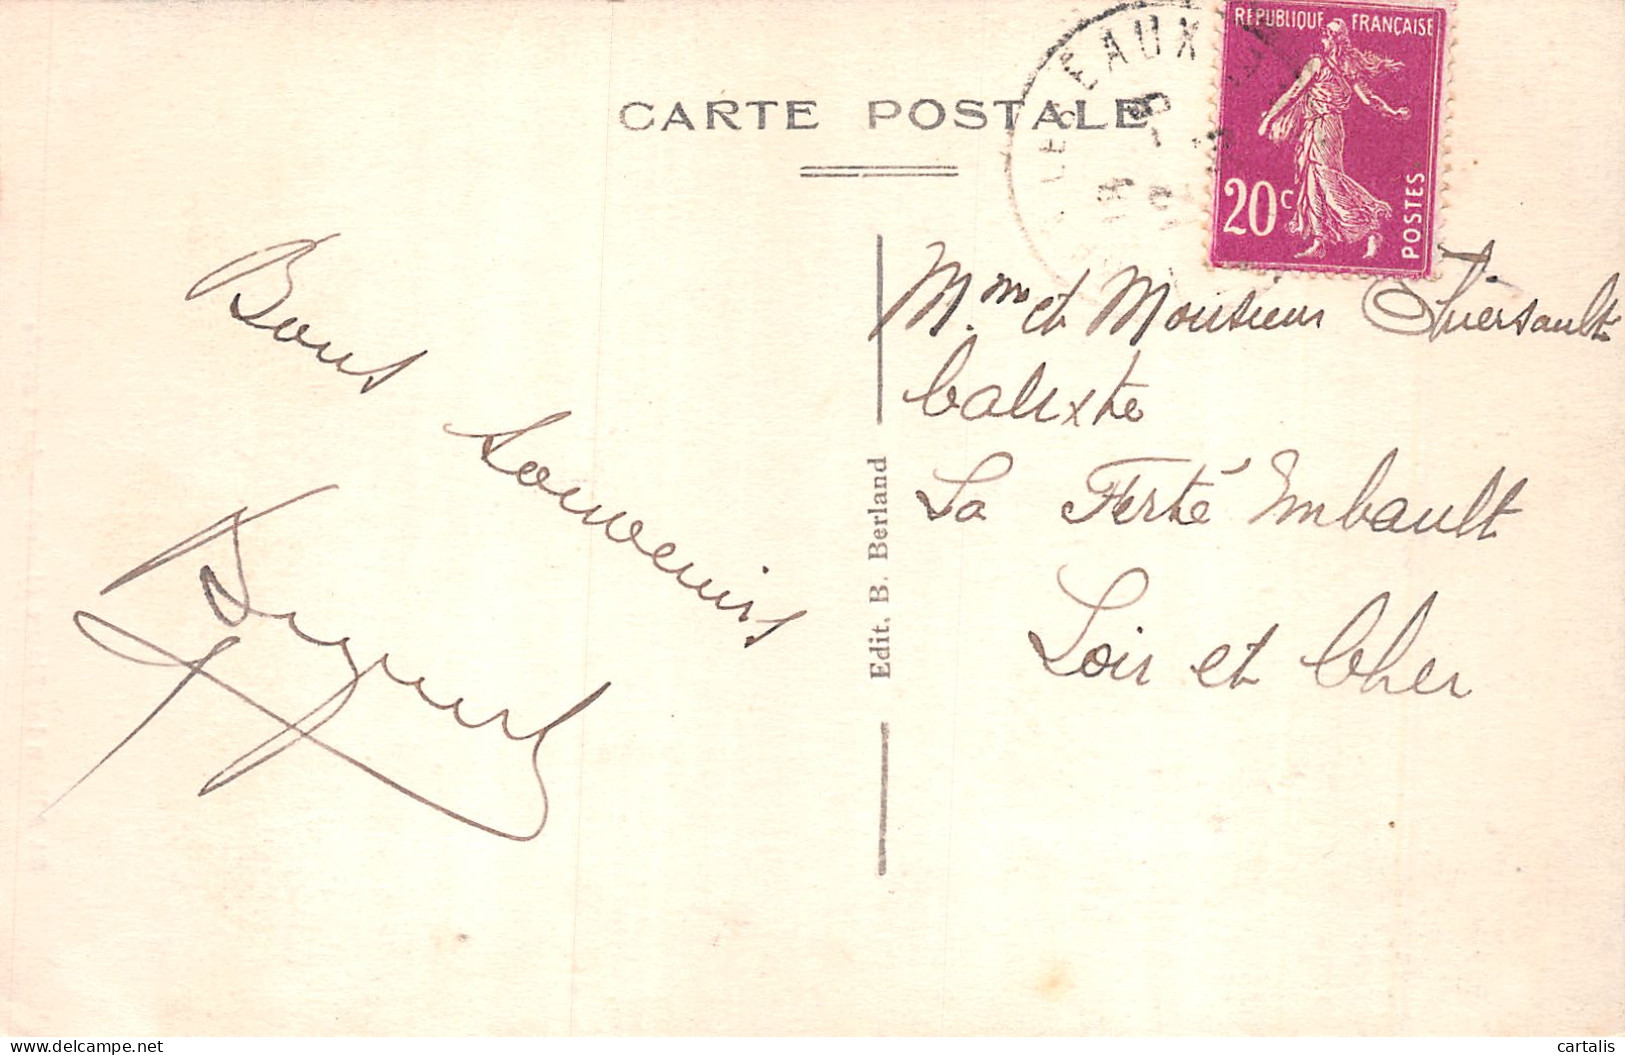 REPUBLIQUE FRANÇAISE
20c
POSTES
CARTE POSTALE
EAUX
Bons Souvenirs
Edit. B. Berland
Mme et Monsieur Thiersault
Calixte
La Ferté Imbault
Loir et Cher
delcampe.net
cartalis